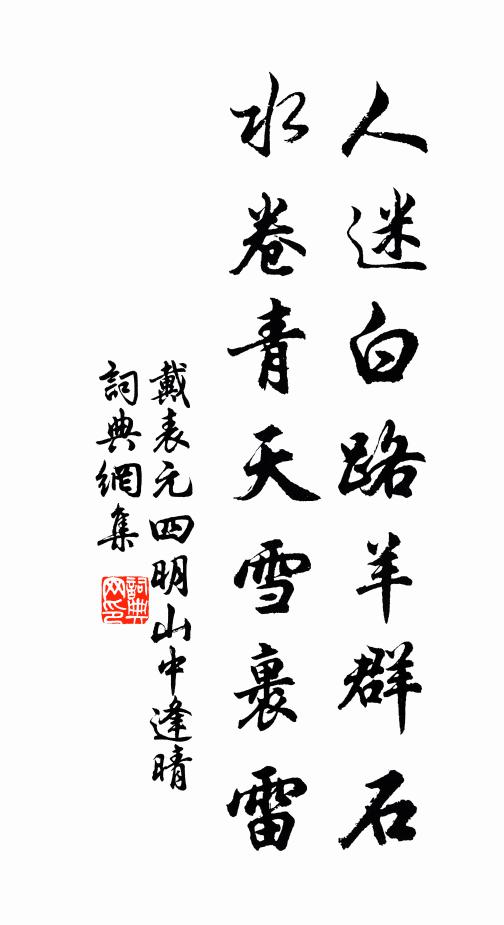 人迷白路羊群石
水卷青天雪裏雷
戴表元四明山中逢晴
詞典網集
詞典网印